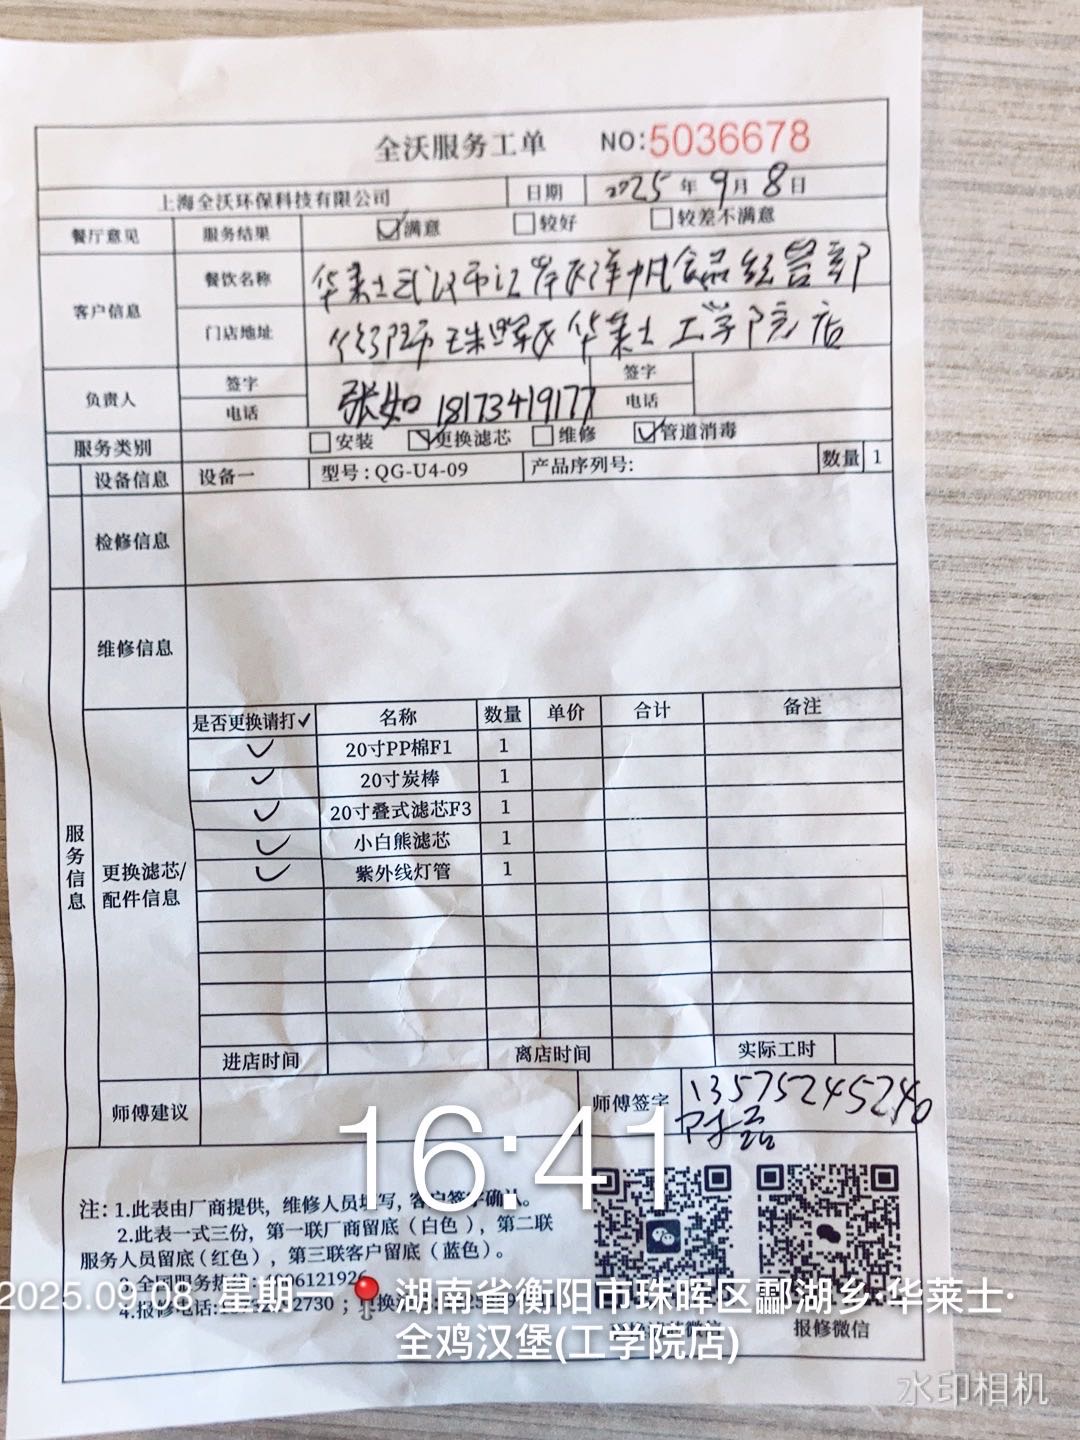 全沃服务工单 NO:5036678
上海全沃环保科技有限公司 日期 2025年9月8日
餐厅意见 服务结果 ☑满意 □较好 □较差不满意
客户信息 餐饮名称 华莱士武汉市江岸区洋帆食品经营部
门店地址 衡阳市珠晖区华莱士工学院店
负责人 签字 张如 签字
电话 18173419177 电话
服务类别 □安装 ☑更换滤芯 □维修 ☑管道消毒
设备信息 设备一 型号:QG-U4-09 产品序列号: 数量 1
检修信息
维修信息
服务信息
更换滤芯/
配件信息
是否更换请打✓ 名称 数量 单价 合计 备注
✓ 20寸PP棉F1 1
✓ 20寸炭棒 1
✓ 20寸叠式滤芯F3 1
✓ 小白熊滤芯 1
✓ 紫外线灯管 1
进店时间 离店时间 实际工时
师傅建议 师傅签字 13575245240
16:41
注: 1.此表由厂商提供, 维修人员填写, 客户签字确认。
2.此表一式三份, 第一联厂商留底(白色), 第二联
服务人员留底(红色), 第三联客户留底(蓝色)。
全国服务热
4.报修电话:
报修微信
2025.09.08 星期一 湖南省衡阳市珠晖区酃湖乡·华莱士·
全鸡汉堡(工学院店)
水印相机